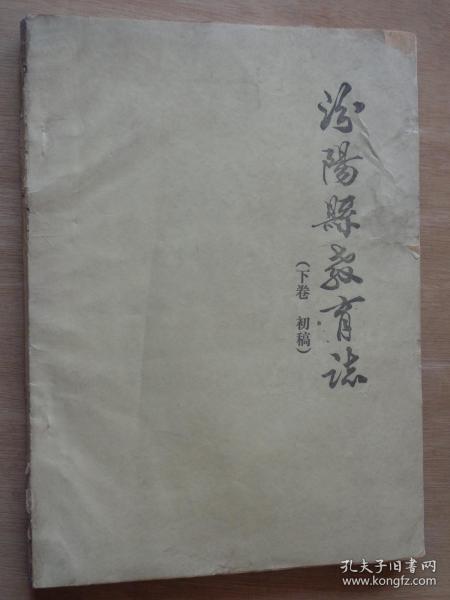 汾陽縣教育誌
（下卷 初稿）
孔夫子旧书网
www.kongfz.com